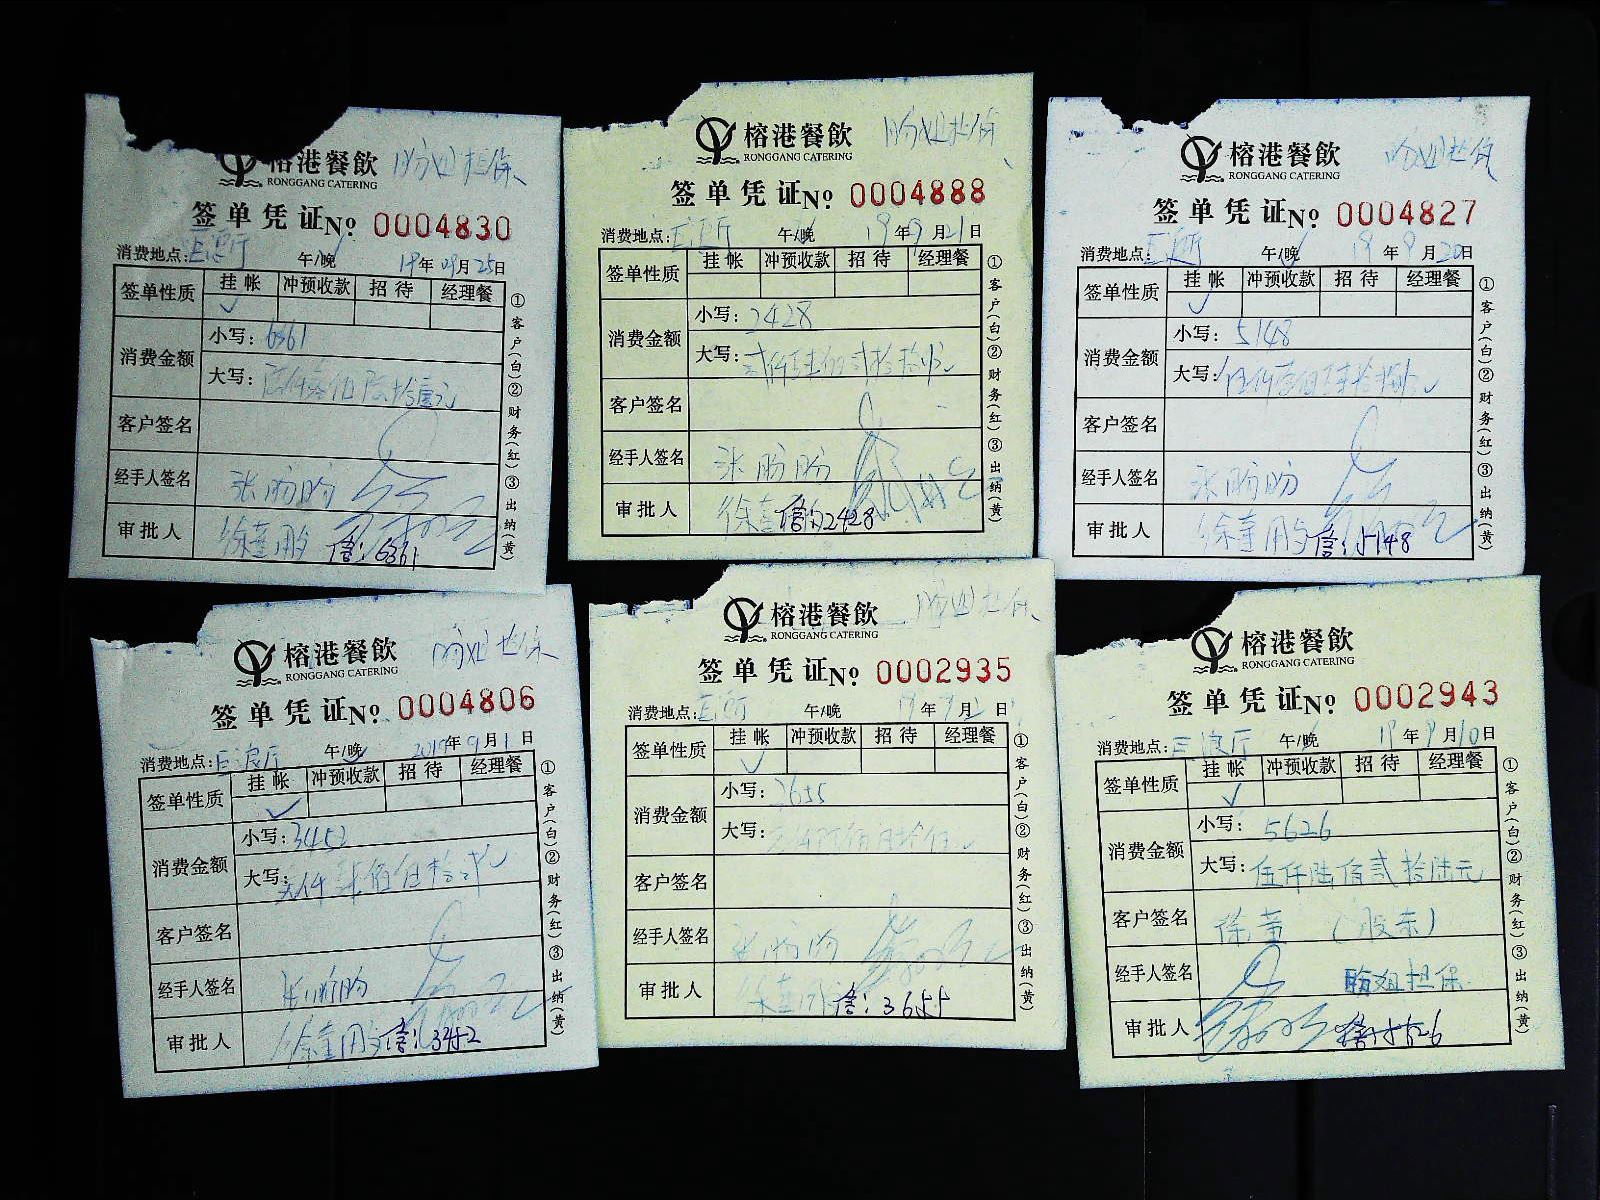 榕港餐飲
RONGGANG CATERING
签单凭证 No 0004830
消费地点: 午/晚 19年09月25日
签单性质 挂帐 冲预收款 招待 经理餐
消费金额 小写: 6361
大写: 陆仟叁佰陆拾壹元
客户签名
经手人签名 张昐昐
审批人 徐董用餐 6361
①客户(白)②财务(红)③出纳(黄)
榕港餐飲
RONGGANG CATERING
签单凭证 No 0004888
消费地点: 午/晚 19年9月21日
签单性质 挂帐 冲预收款 招待 经理餐
消费金额 小写: 2428
大写: 贰仟肆佰贰拾捌元
客户签名
经手人签名 张昐昐
审批人 2428
①客户(白)②财务(红)③出纳(黄)
榕港餐飲
RONGGANG CATERING
签单凭证 No 0004827
消费地点: 午/晚 19年9月20日
签单性质 挂帐 冲预收款 招待 经理餐
消费金额 小写: 5148
大写: 伍仟壹佰肆拾捌元
客户签名
经手人签名 张昐昐
审批人 5148
①客户(白)②财务(红)③出纳(黄)
榕港餐飲
RONGGANG CATERING
签单凭证 No 0004806
消费地点: 巨浪厅 午/晚 2019年9月1日
签单性质 挂帐 冲预收款 招待 经理餐
消费金额 小写: 3452
大写: 叁仟肆佰伍拾贰元
客户签名
经手人签名 张昐昐
审批人 3452
①客户(白)②财务(红)③出纳(黄)
榕港餐飲
RONGGANG CATERING
签单凭证 No 0002935
消费地点: 午/晚 19年9月2日
签单性质 挂帐 冲预收款 招待 经理餐
消费金额 小写: 3655
大写:
客户签名
经手人签名 张昐昐
审批人 3655
①客户(白)②财务(红)③出纳(黄)
榕港餐飲
RONGGANG CATERING
签单凭证 No 0002943
消费地点: 巨浪厅 午/晚 19年9月10日
签单性质 挂帐 冲预收款 招待 经理餐
消费金额 小写: 5626
大写: 伍仟陆佰贰拾陆元
客户签名 徐董 (股东)
经手人签名 昐姐担保
审批人
①客户(白)②财务(红)③出纳(黄)